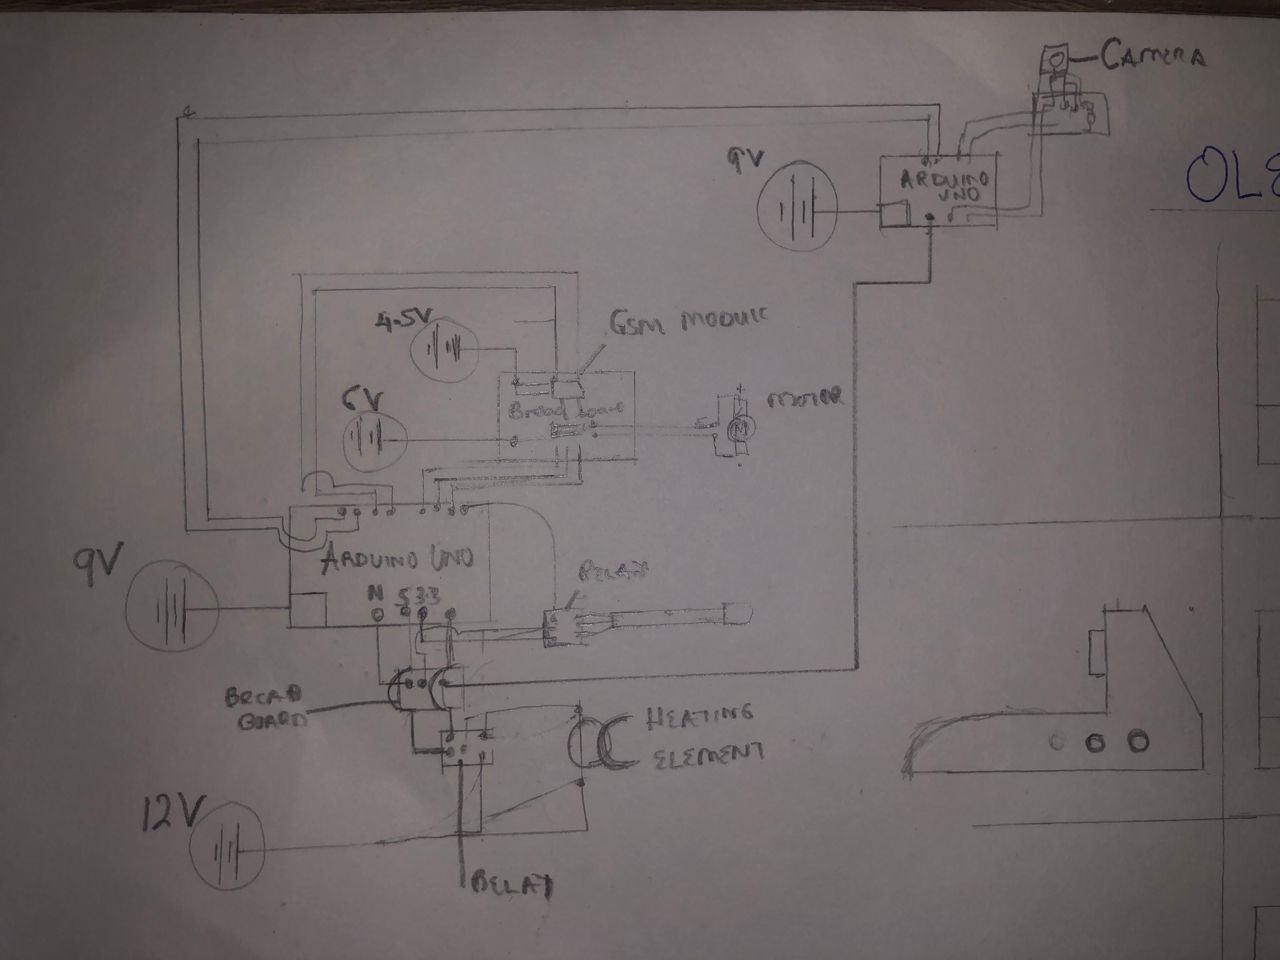 CAMERA
9V
ARDUINO
UNO
OLE
4.5V
GSM MODULE
6V
Bread board
MOTOR
M
9V
ARDUINO UNO
N 5 3.3
RELAY
BREAD
BOARD
HEATING
ELEMENT
12V
RELAY